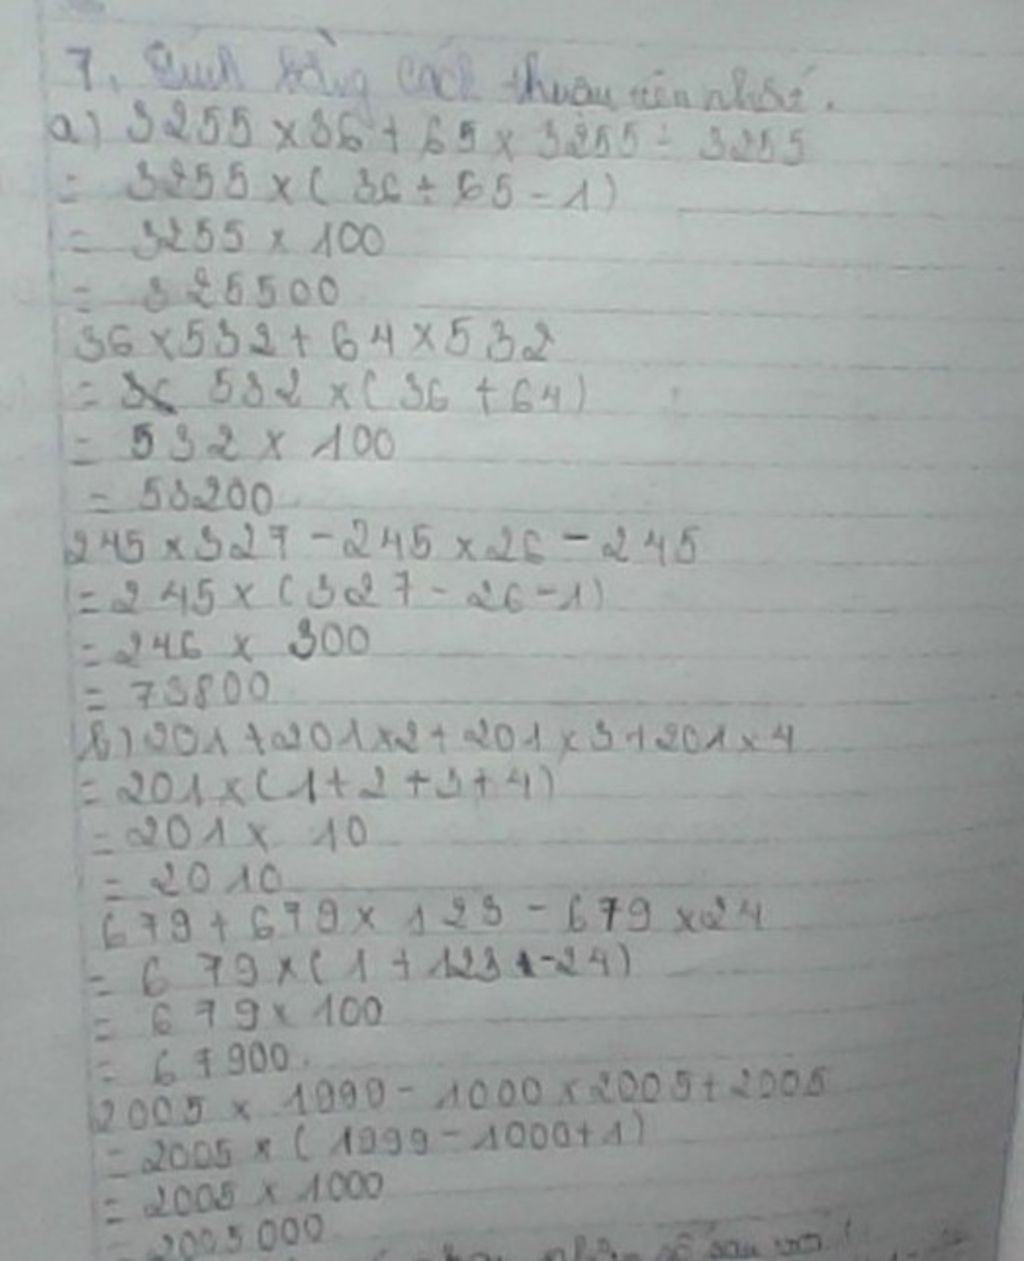 7. Tính bằng cách thuận tiện nhất.
a) 3255 × 36 + 65 × 3255 - 3255
= 3255 × ( 36 + 65 - 1 )
= 3255 × 100
= 325500
36 × 532 + 64 × 532
= 532 × ( 36 + 64 )
= 532 × 100
= 53200
245 × 327 - 245 × 26 - 245
= 245 × ( 327 - 26 - 1 )
= 246 × 300
= 73800
b) 201 + 201 × 2 + 201 × 3 + 201 × 4
= 201 × ( 1 + 2 + 3 + 4 )
= 201 × 10
= 2010
679 + 679 × 123 - 679 × 24
= 679 × ( 1 + 123 - 24 )
= 679 × 100
= 67900.
2005 × 1999 - 1000 × 2005 + 2005
= 2005 × ( 1999 - 1000 + 1 )
= 2005 × 1000
= 2005000